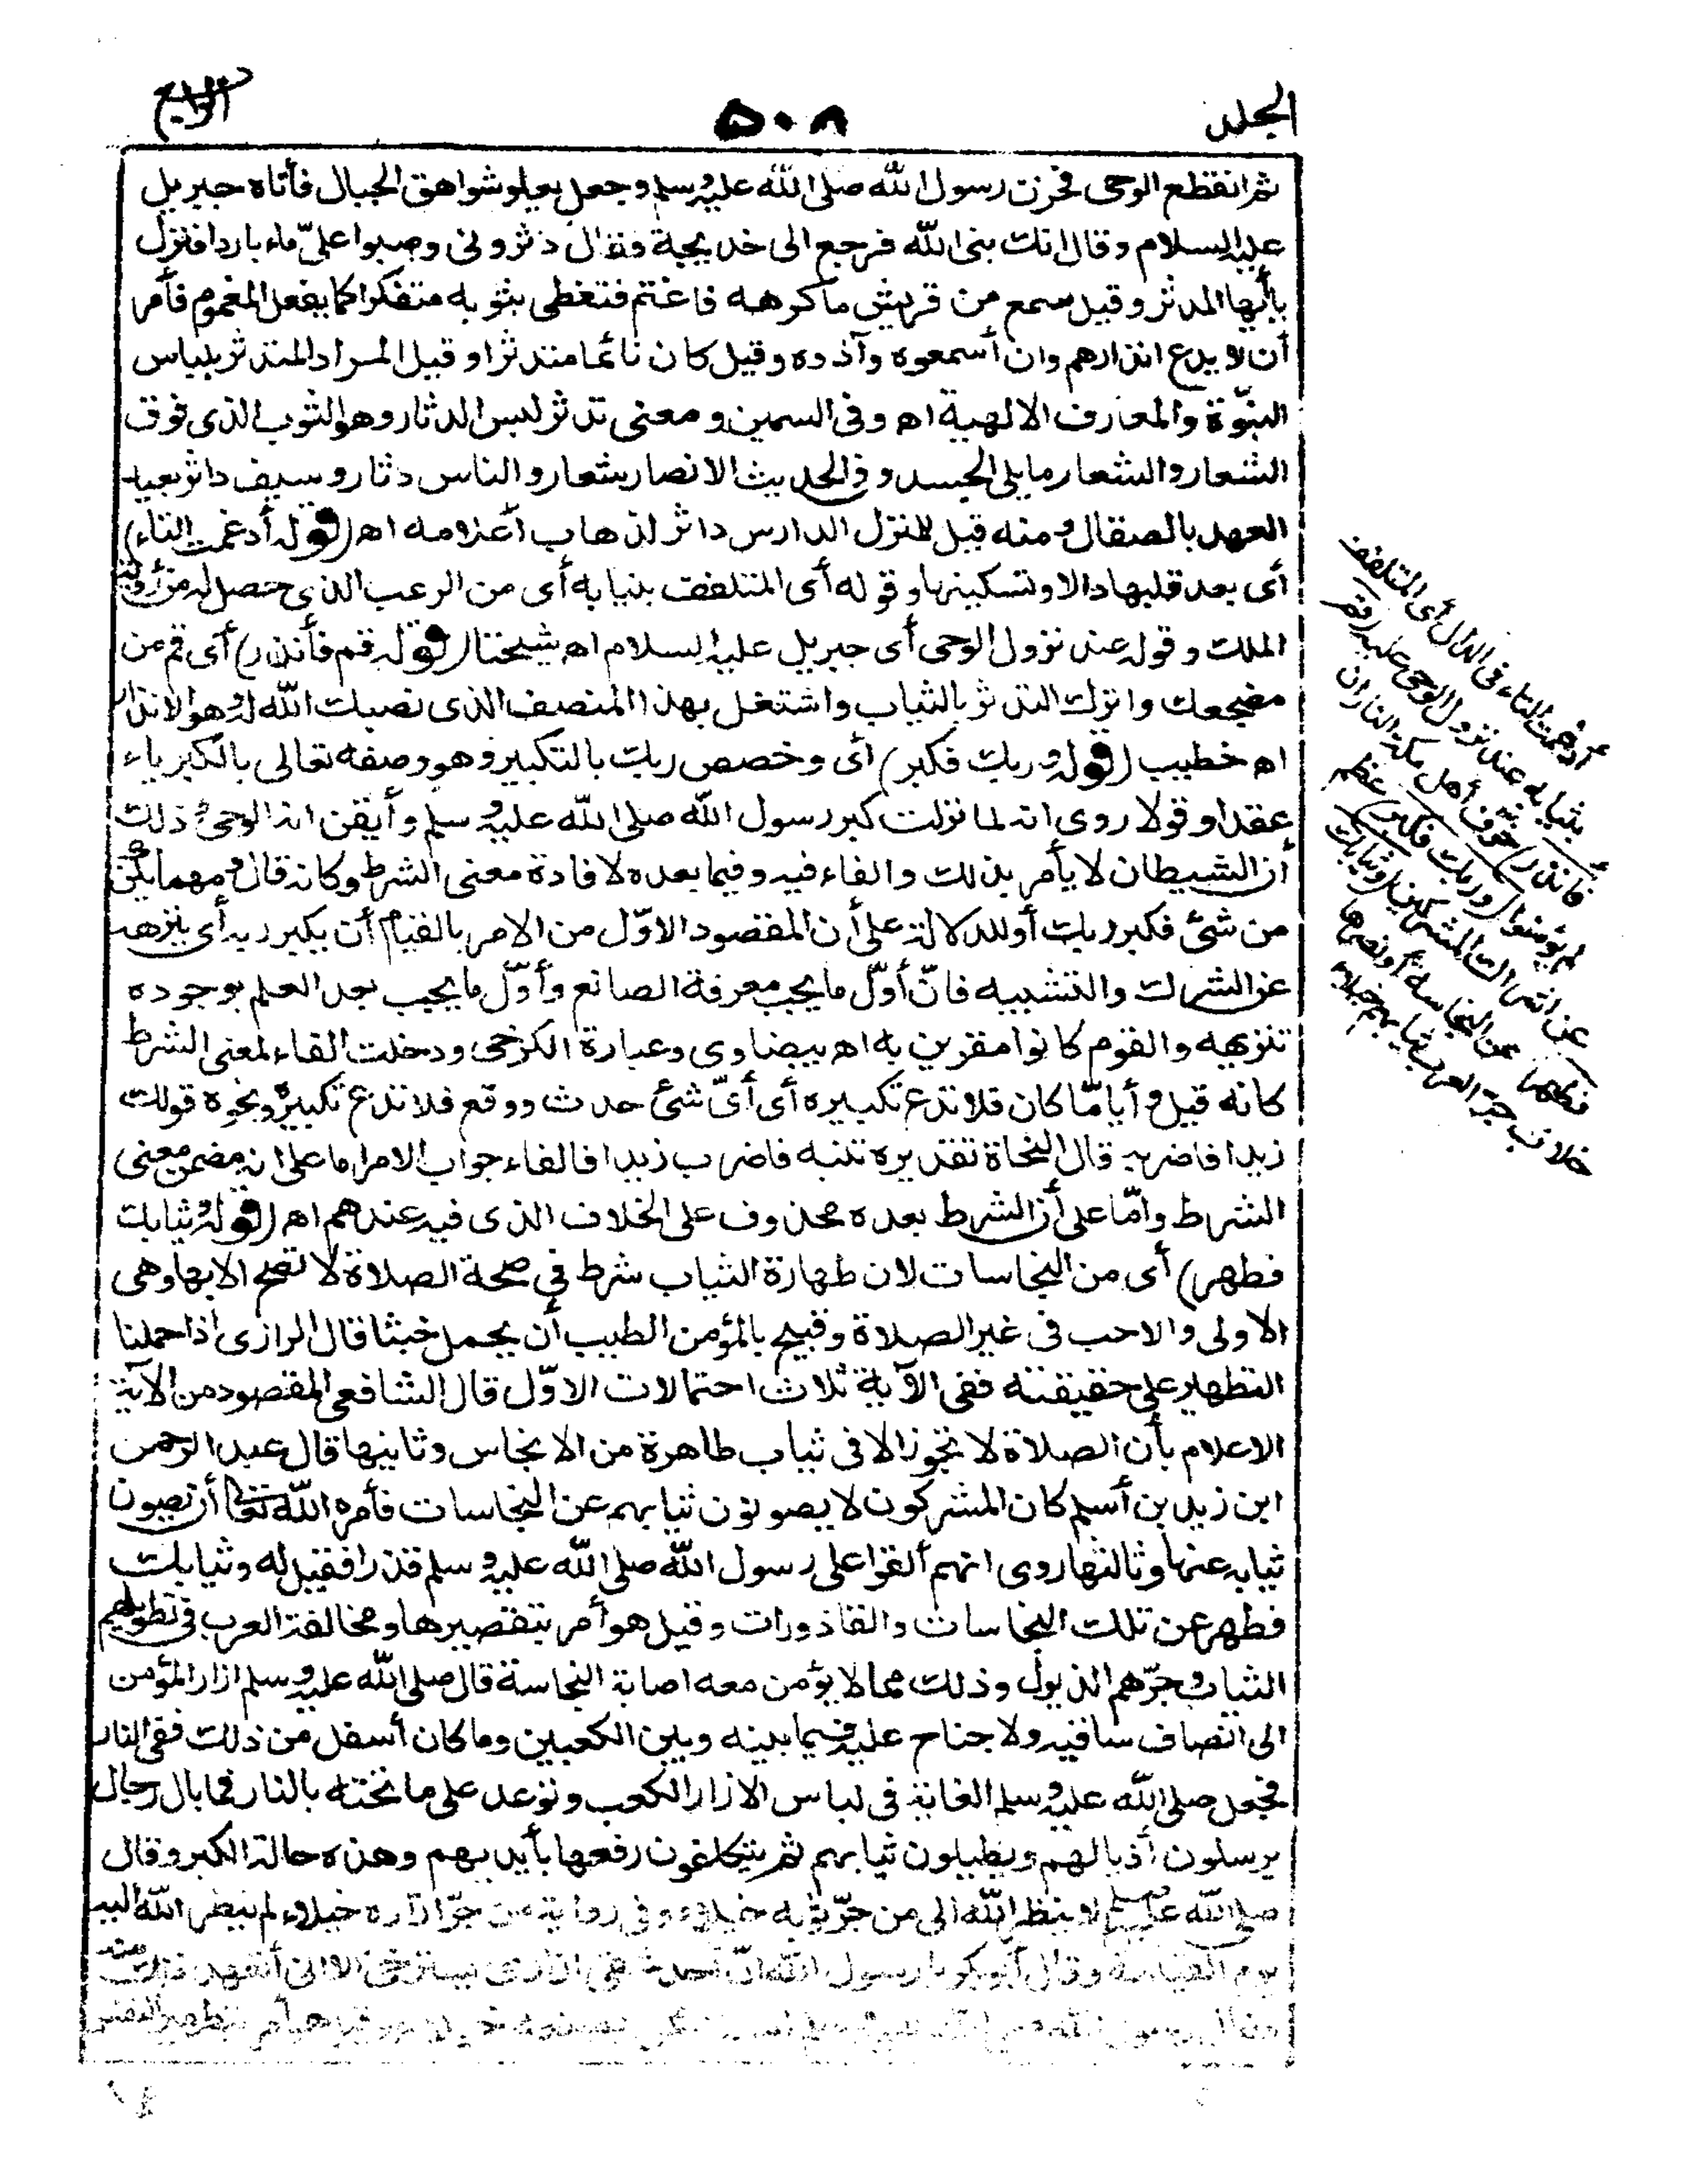 الجلد
٥٠٨
الرابع
ثم انقطع الوحى فحزن رسول الله صلى الله عليه وسلم وجعل يعلو شواهق الجبال فأتاه جبريل
عليه السلام وقال انك نبى الله فرجع الى خديجة وقال دثرونى وصبوا علىّ ماء باردا فنزل
يأيها المدثر وقيل سمع من قريش ما كرهه فاغتم فتغطى بثوبه متفكرا كما يفعل المغموم فأمر
أن لا يدع انذارهم وان أسمعوه وآذوه وقيل كان نائما متدثرا وقيل المراد المتدثر بلباس
النبوّة والمعارف الالهية اه وفى السمين ومعنى تدثر لبس الدثار وهو الثوب الذى فوق
الشعار والشعار ما يلى الجسد وفى الحديث الانصار شعار والناس دثار وسيف داثر بعيد
العهد بالصقال ومنه قيل للمنزل الدارس داثر لذهاب أعلامه اه (قوله أدغمت التاء)
أى بعد قلبها دالا وتسكينها وقوله أى المتلفف بثيابه أى من الرعب الذى حصل له من رؤية
الملك وقوله عند نزول الوحى أى جبريل عليه السلام اه شيخنا (قوله قم فأنذر) أى قم من
مضجعك واترك التدثر بالثياب واشتغل بهذا المنصف الذى نصبك الله له وهو الانذار
اه خطيب (قوله وربك فكبر) أى وخصص ربك بالتكبير وهو وصفه تعالى بالكبرياء
عقدا وقولا روى انه لما نزلت كبر رسول الله صلى الله عليه وسلم وأيقن انه الوحى وذلك
أن الشيطان لا يأمر بذلك والفاء فيه وفيما بعده لافادة معنى الشرط وكانه قال ومهما يكن
من شئ فكبر ربك أو للدلالة على أن المقصود الاوّل من الامر بالقيام أن يكبر ربه أى ينزهه
عن الشرك والتشبيه فانّ أوّل ما يجب معرفة الصانع وأوّل ما يجب بعد العلم بوجوده
تنزيهه والقوم كانوا مقرين به اه بيضاوى وعبارة الكرخى ودخلت الفاء لمعنى الشرط
كانه قيل وأيا مّا كان فلا تدع تكبيره أى أىّ شئ حدث ووقع فلا تدع تكبيره ونحوه قولك
زيدا فاضربه قال النحاة تقديره تنبه فاضرب زيدا فالفاء جواب الامر اما على انه مضمن معنى
الشرط وامّا على أن الشرط بعده محذوف على الخلاف الذى فيه عندهم اه (قوله وثيابك
فطهر) أى من النجاسات لان طهارة الثياب شرط فى صحة الصلاة لا تصح الا بها وهى
الاولى والاحب فى غير الصلاة وقبيح بالمؤمن الطيب أن يحمل خبثا قال الرازى اذا حملنا
التطهير على حقيقته ففى الآية ثلاث احتمالات الاوّل قال الشافعى المقصود من الآية
الاعلام بأن الصلاة لا تجوز الا فى ثياب طاهرة من الانجاس وثانيها قال عبد الرحمن
ابن زيد بن أسلم كان المشركون لا يصونون ثيابهم عن النجاسات فأمره الله تعالى أن يصون
ثيابه عنها وثالثها روى انهم ألقوا على رسول الله صلى الله عليه وسلم قذرا فقيل له وثيابك
فطهر عن تلك النجاسات والقاذورات وقيل هو أمر بتقصيرها ومخالفة العرب فى تطويلهم
الثياب وجرّهم الذيول وذلك مما لا يؤمن معه اصابة النجاسة قال صلى الله عليه وسلم ازار المؤمن
الى انصاف ساقيه ولا جناح عليه فيما بينه وبين الكعبين وما كان أسفل من ذلك ففى النار
فجعل صلى الله عليه وسلم الغاية فى لباس الازار الكعب وتوعد على ما تحته بالنار فما بال رجال
يرسلون أذيالهم ويطيلون ثيابهم ثم يتكلفون رفعها بأيديهم وهذه حالة الكبر وقال
صلى الله عليه وسلم لا ينظر الله الى من جرّ ثوبه خيلاء وفى رواية من جرّ ازاره خيلاء لم ينظر الله اليه
يوم القيامة وقال أبو بكر يا رسول الله انّ أحد شقى ازارى يسترخى الا انى أتعهد ذلك منه
فقال رسول الله صلى الله عليه وسلم لست ممن يصنعه خيلاء وقيل هو أمر بتطهير النفس
أدغمت التاء فى الدال أى المتلفف
بثيابه عند نزول الوحى عليه (قم
فأنذر) خوف أهل مكة النار ان
لم يؤمنوا (وربك فكبر) عظم
عن اشراك المشركين (وثيابك
فطهر) عن النجاسة أو قصرها
خلاف جر العرب ثيابهم خيلاء